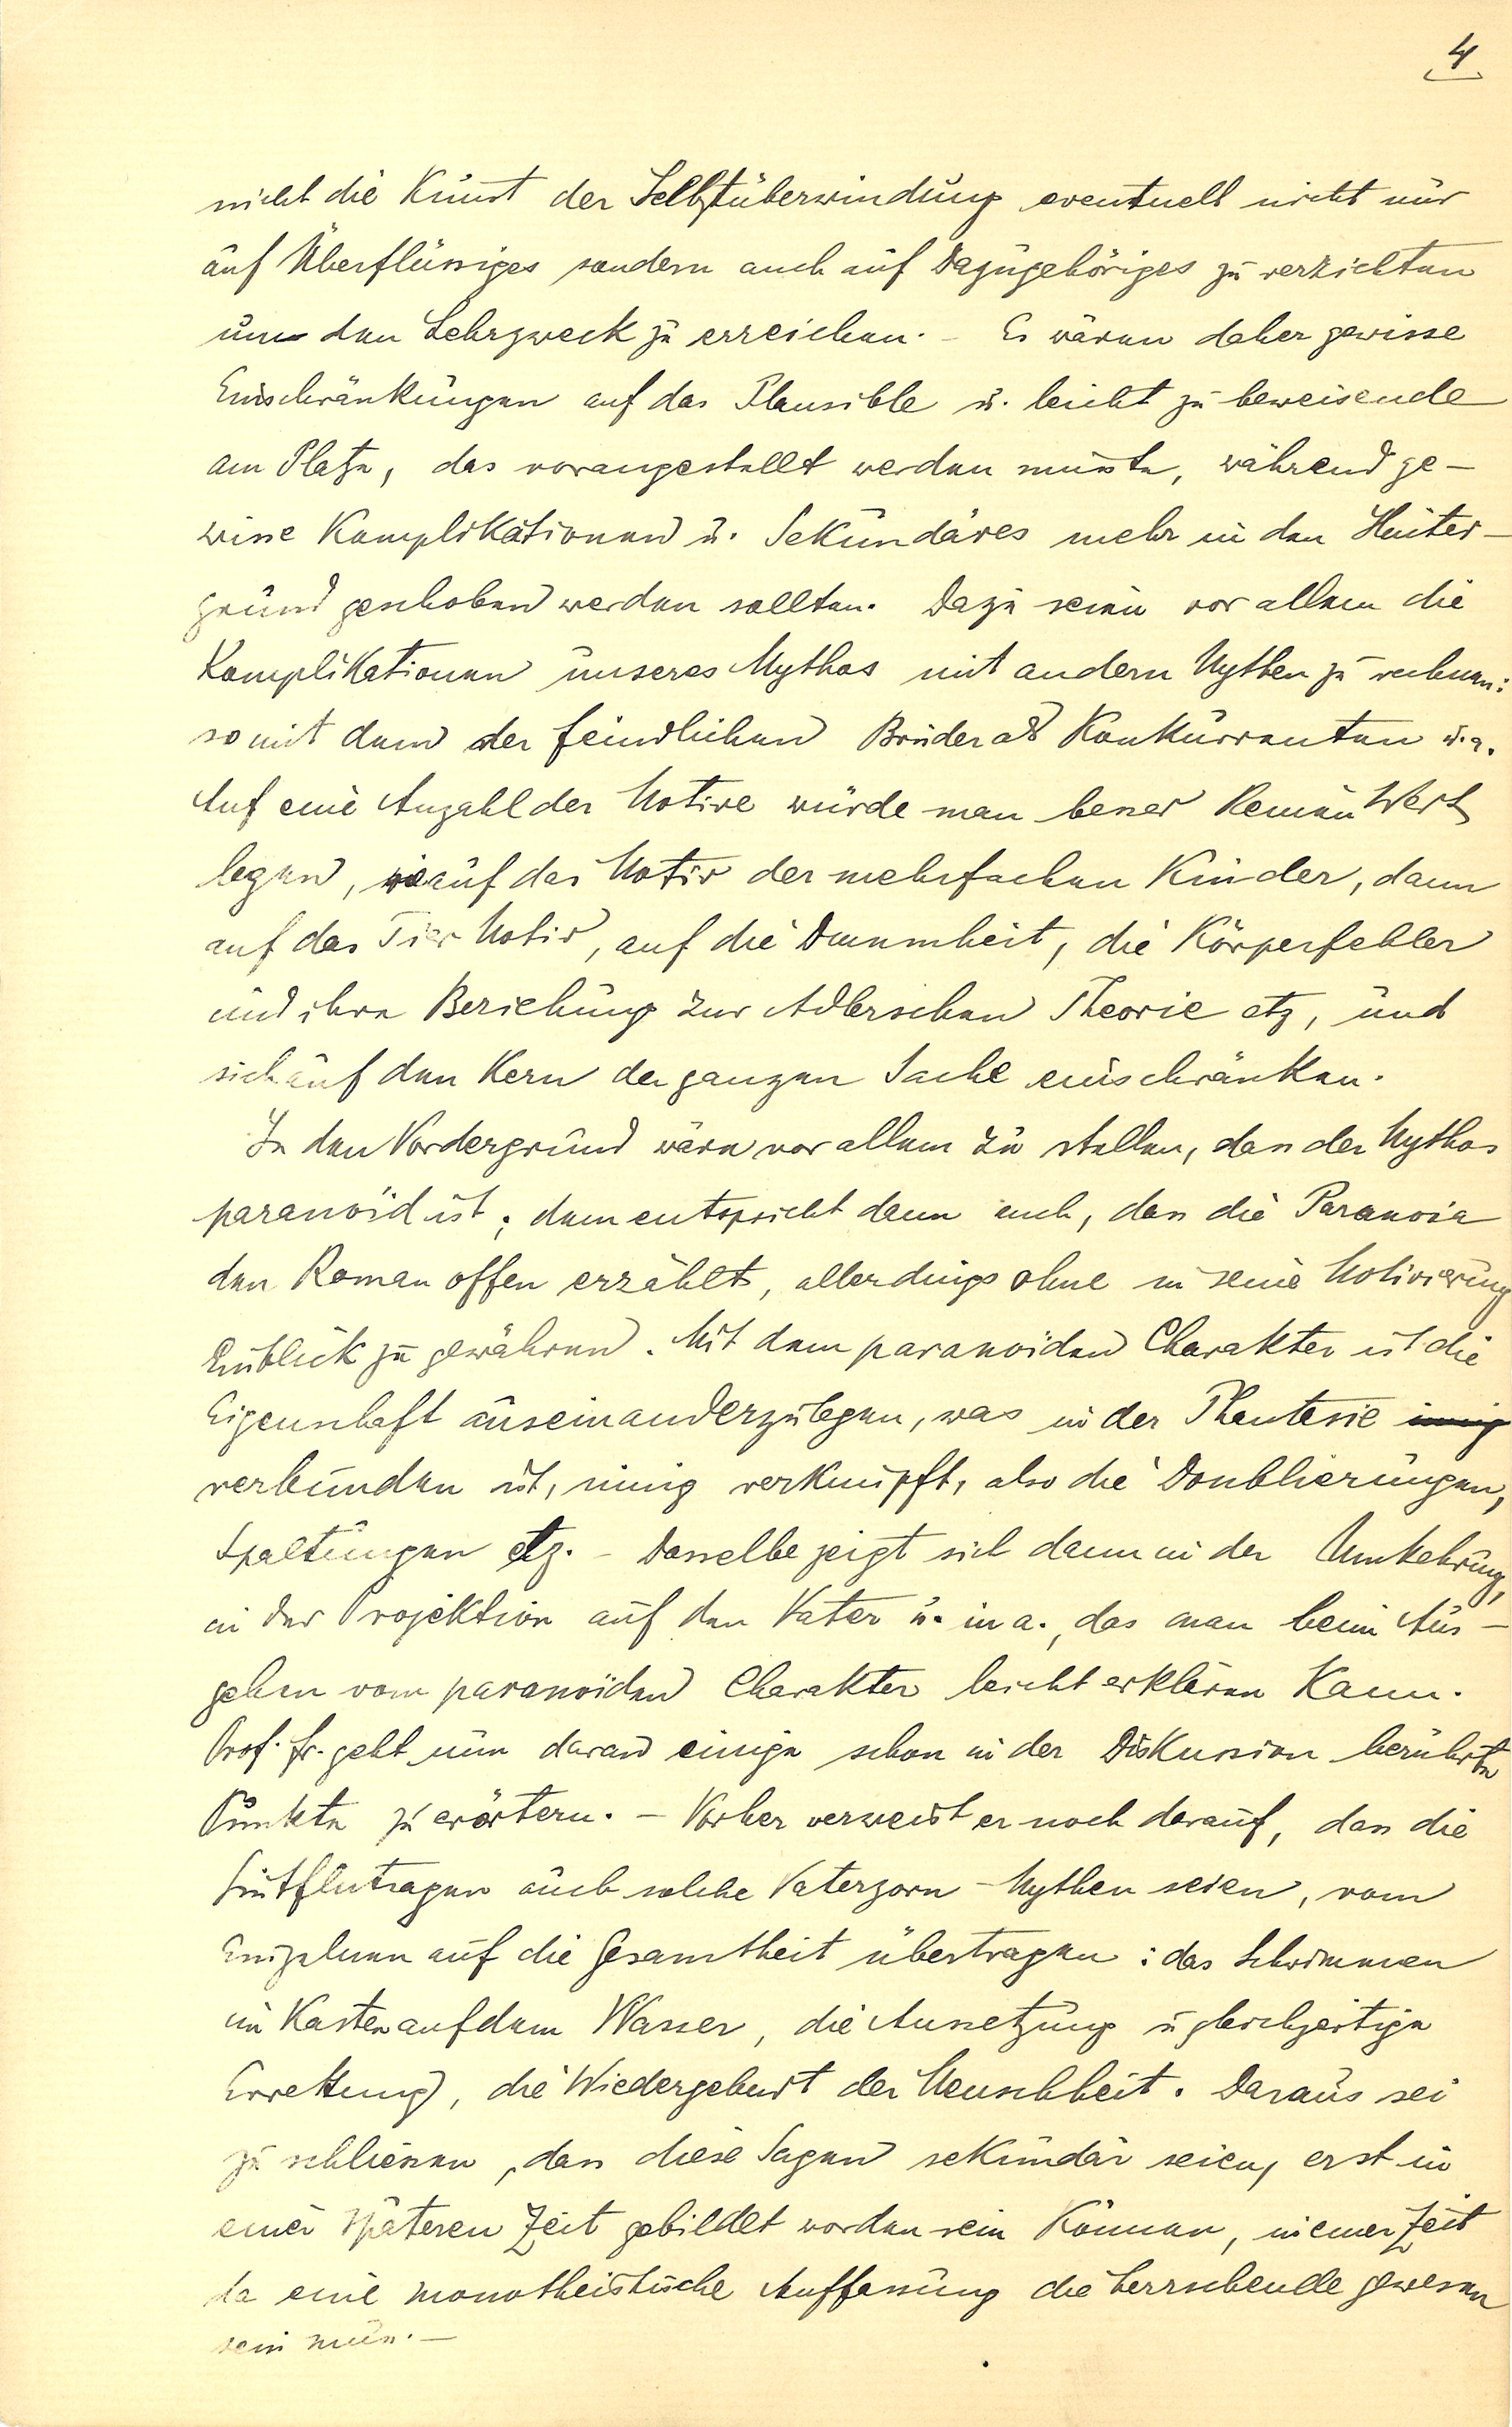 4
nicht die Kunst der Selbstüberwindung eventuell nicht nur
auf Überflüssiges sondern auch auf Dazugehöriges zu verzichten
um den Lehrzweck zu erreichen. – Es wären daher gewisse
Einschränkungen auf das Plausible u. leicht zu beweisende
am Platze, das vorangestellt werden müsste, während ge-
wisse Komplikationen u. Sekundäres mehr in den Hinter-
grund geschoben werden sollten. Dazu seien vor allem die
Komplikationen unseres Mythos mit andern Mythen zu rechnen:
so mit dem der feindlichen Brüder als Konkurrenten u.a.
Auf eine Anzahl der Motive würde man besser keinen Wert
legen, wie auf das Motiv der mehrfachen Kinder, dann
auf das Tier Motiv, auf die Dummheit, die Körperfehler
und ihre Beziehung zur Adlerschen Theorie etz, und
sich auf den Kern der ganzen Sache einschränken.
In den Vordergrund wäre vor allem zu stellen, dass der Mythos
paranoïd ist; dem entspricht dann auch, dass die Paranoia
den Roman offen erzählt, allerdings ohne in seine Motivierung
Einblick zu gewähren. Mit dem paranoiden Charakter ist die
Eigenschaft auseinanderzulegen, was in der Phantasie innig
verbunden ist, innig verknüpft, also die Doublierungen,
Spaltungen etz. – Dasselbe zeigt sich dann in der Umkehrung,
in der Projektion auf den Vater u. in a., das man beim Aus-
gehen vom paranoïden Charakter leicht erklären kann.
Prof. Fr. geht nun daran einige schon in der Diskussion berührte
Punkte zu erörtern. – Vorher verweist er noch darauf, dass die
Sintflutsagen auch solche Vaterzorn-Mythen seien, vom
Einzelnen auf die Gesamtheit übertragen: das Schwimmen
im Kasten auf dem Wasser, die Aussetzung u gleichzeitige
Errettung, die Wiedergeburt der Menschheit. Daraus sei
zu schliessen, dass diese Sagen sekundär seien, erst in
einer späteren Zeit gebildet worden sein können, in einer Zeit
da eine monotheistische Auffassung die herrschende gewesen
sein muss. –